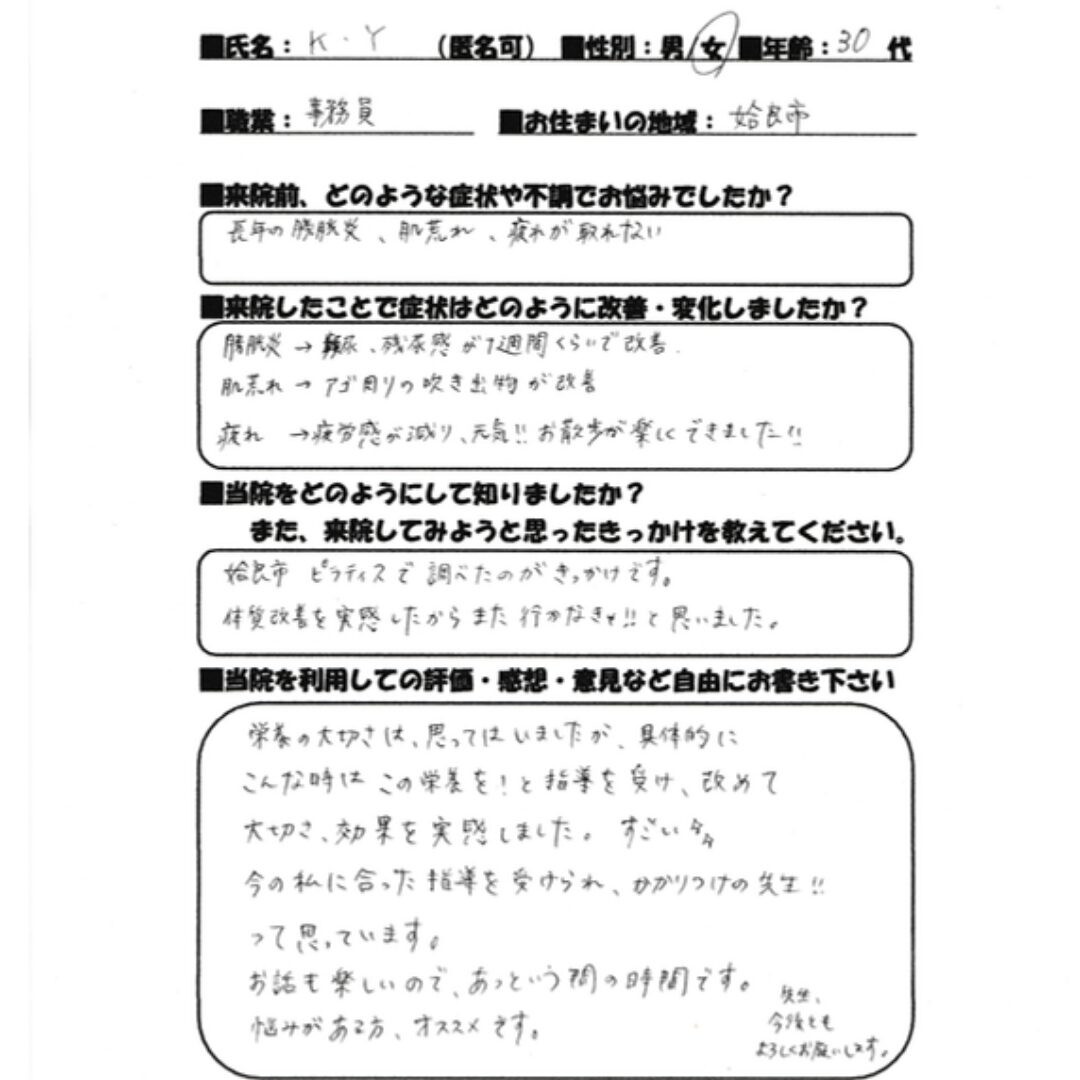 ■氏名：K・Y （匿名可） ■性別：男/女 ■年齢：30 代
■職業：事務員 ■お住まいの地域：姶良市
■来院前、どのような症状や不調でお悩みでしたか？
長年の膀胱炎、肌荒れ、疲れが取れない
■来院したことで症状はどのように改善・変化しましたか？
膀胱炎→頻尿、残尿感が1週間くらいで改善.
肌荒れ→アゴ周りの吹き出物が改善
疲れ →疲労感が減り、元気!!お散歩が楽しくできました!!
■当院をどのようにして知りましたか？
また、来院してみようと思ったきっかけを教えてください。
姶良市 ピラティスで調べたのがきっかけです。
体質改善を実感したからまた行かなきゃ!!と思いました。
■当院を利用しての評価・感想・意見など自由にお書き下さい
栄養の大切さは、思ってはいましたが、具体的に
こんな時はこの栄養を！と指導を受け、改めて
大切さ、効果を実感しました。すごい
今の私に合った指導を受けられ、かかりつけの先生!!
って思っています。
お話も楽しいので、あっという間の時間です。
悩みがある方、オススメです。
先生、
今後とも
よろしくお願いします。